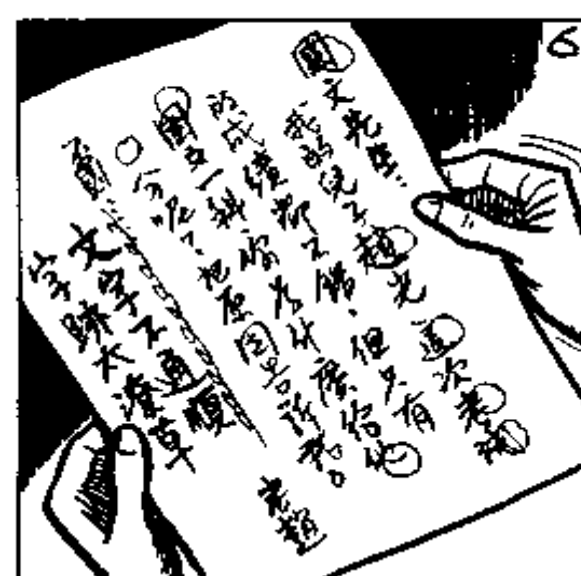 6
國文先生:
我的兒子趙光這次考試
的成績都不錯、但只有
國文一科、你為什麼給他
〇分呢?把原因告訴我。
老趙
文字不通順
字跡太潦草